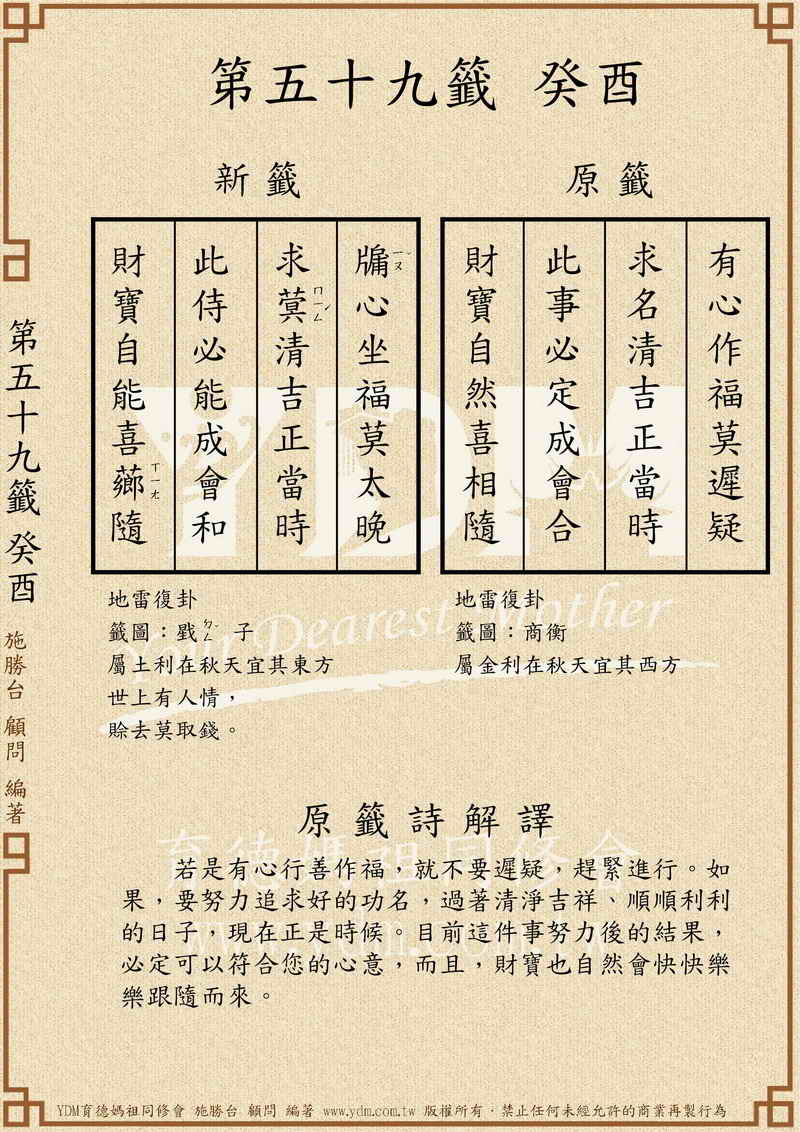 第五十九籤 癸酉
原籤
有心作福莫遲疑
求名清吉正當時
此事必定成會合
財寶自然喜相隨
地雷復卦
籤圖：商衡
屬金利在秋天宜其西方
新籤
牖ㄧㄡˇ心坐福莫太晚
求蓂ㄇㄧㄥˊ清吉正當時
此侍必能成會和
財寶自能喜薌ㄒㄧㄤ隨
地雷復卦
籤圖：戥ㄉㄥˇ 子
屬土利在秋天宜其東方
世上有人情，
賒去莫取錢。
原籤詩解譯
若是有心行善作福，就不要遲疑，趕緊進行。如
果，要努力追求好的功名，過著清淨吉祥、順順利利
的日子，現在正是時候。目前這件事努力後的結果，
必定可以符合您的心意，而且，財寶也自然會快快樂
樂跟隨而來。
第五十九籤 癸酉
施勝台 顧問 編著
YDM
Your Dearest Mother
育德媽祖同修會
www.ydm.com.tw
YDM育德媽祖同修會 施勝台 顧問 編著 www.ydm.com.tw 版權所有．禁止任何未經允許的商業再製行為